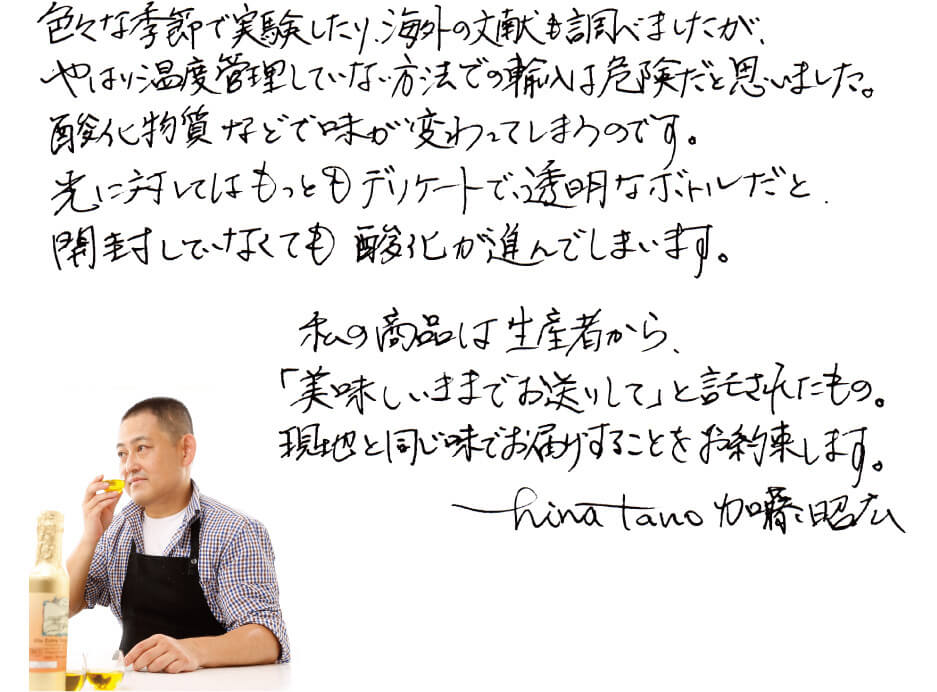 色々な季節で実験したり、海外の文献も調べましたが、
やはり温度管理していない方法での輸入は危険だと思いました。
酸化物質などで味が変わってしまうのです。
光に対してはもっともデリケートで、透明なボトルだと、
開封していなくても酸化が進んでしまいます。
私の商品は生産者から、
「美味しいままでお送りして」と託されたもの。
現地と同じ味でお届けすることをお約束します。
hinatano 加藤昭広